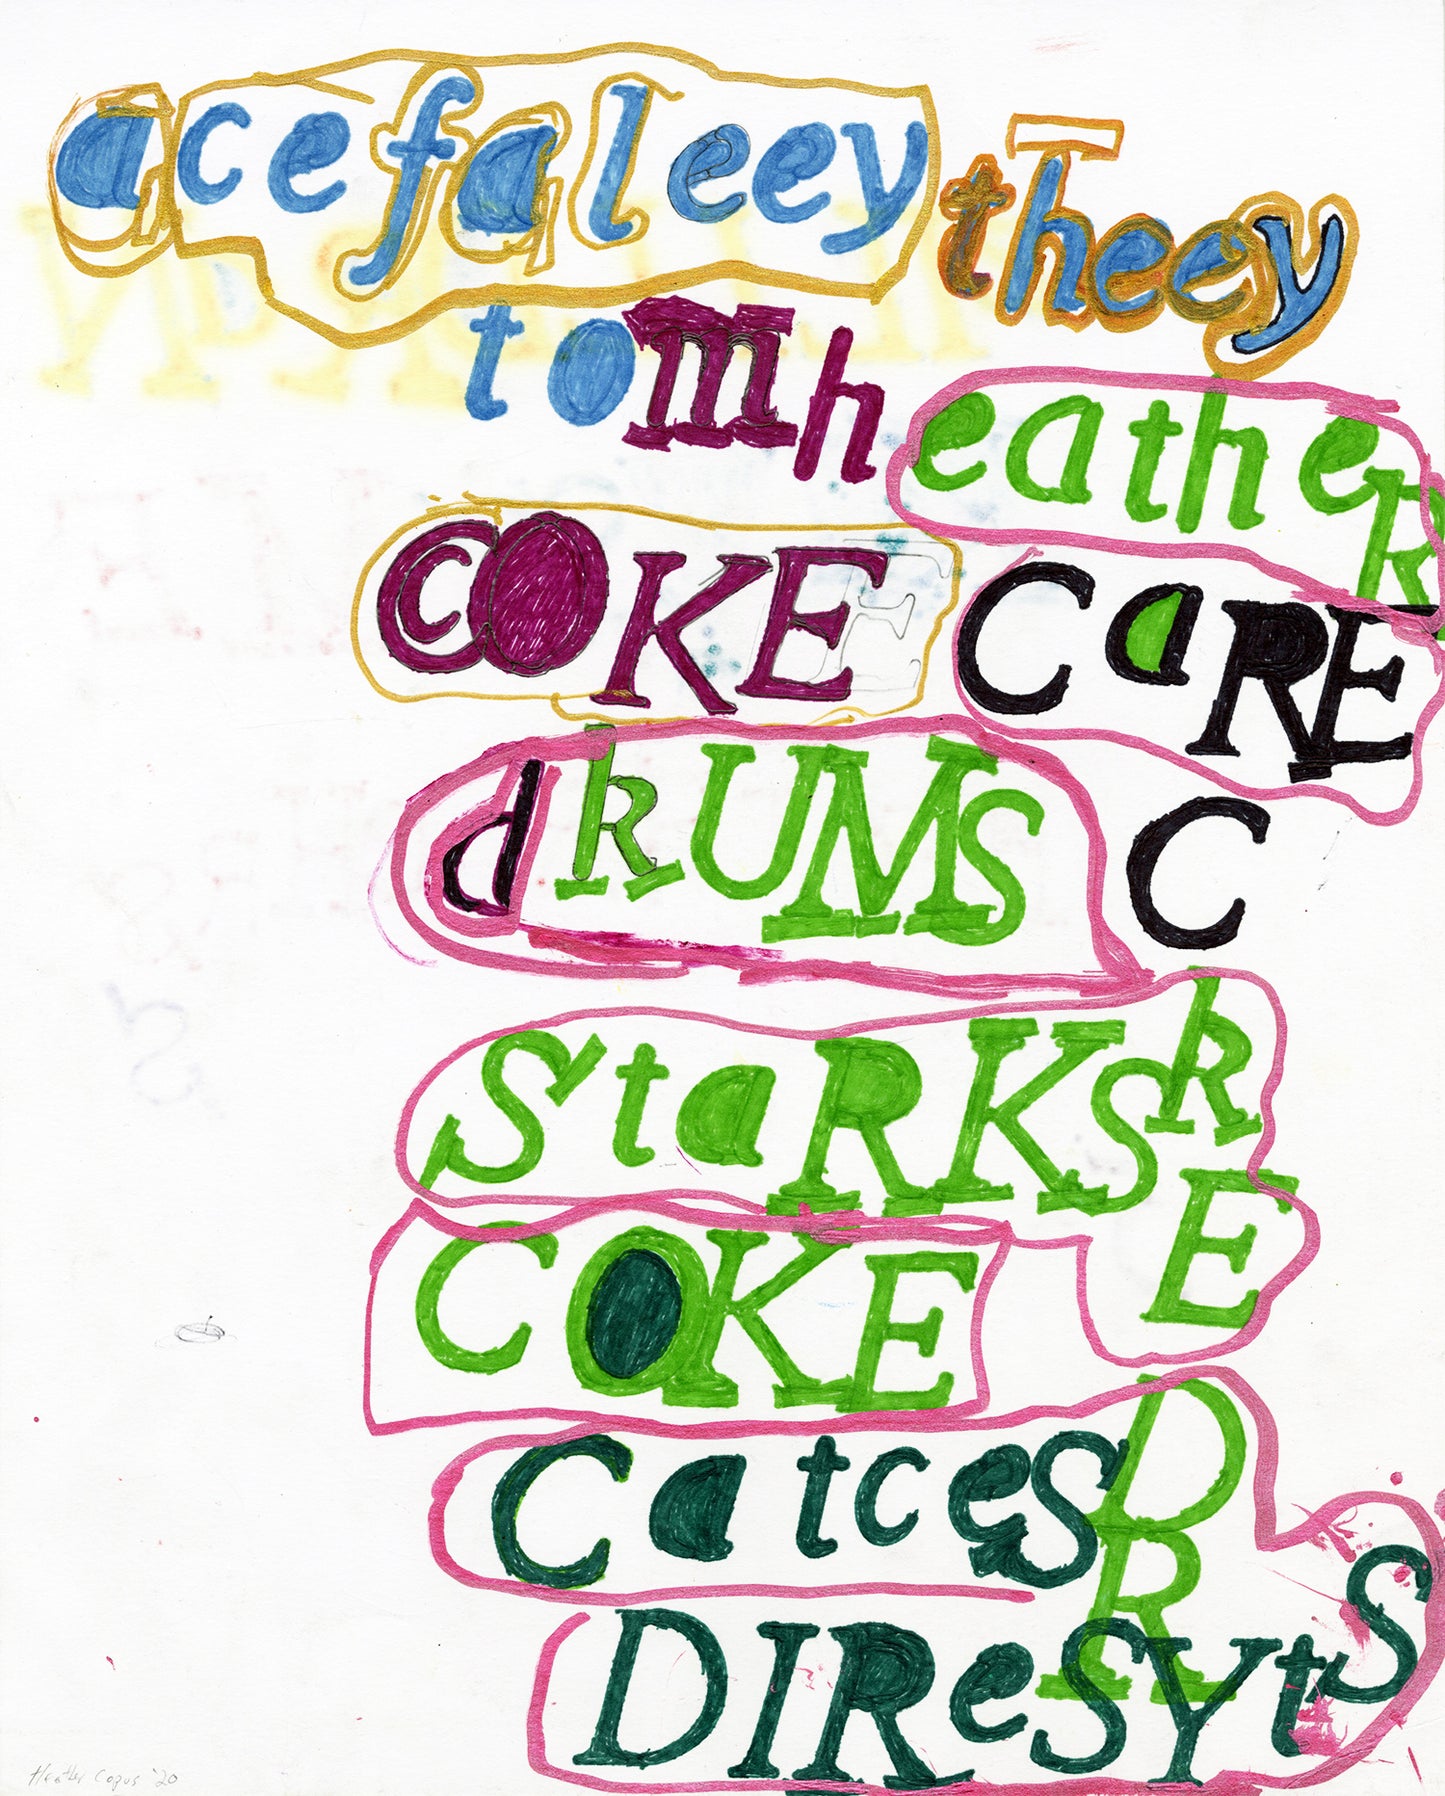 acefaleey theey
tomheatheR
COKE CaRE
dRUMS C
StaRKS R
COKE E
Catces D
DIResyts R
Heather Copus '20